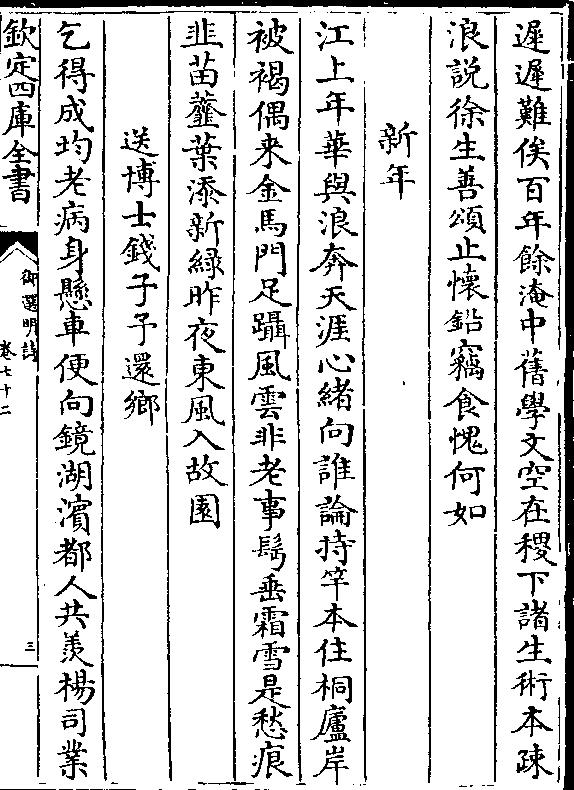 遲遲難俟百年餘淹中舊學文空在稷下諸生術本疎
浪說徐生善頌止懷鉛竊食愧何如
新年
江上年華與浪奔天涯心緒向誰論持竿本住桐廬岸
被褐偶来金馬門足躡風雲非老事髩垂霜雪是愁痕
韭苗虀葉添新緑昨夜東風入故園
送博士錢子予還鄉
乞得成均老病身懸車便向鏡湖濱都人共羨楊司業
欽定四庫全書
御選明詩
卷七十二
三